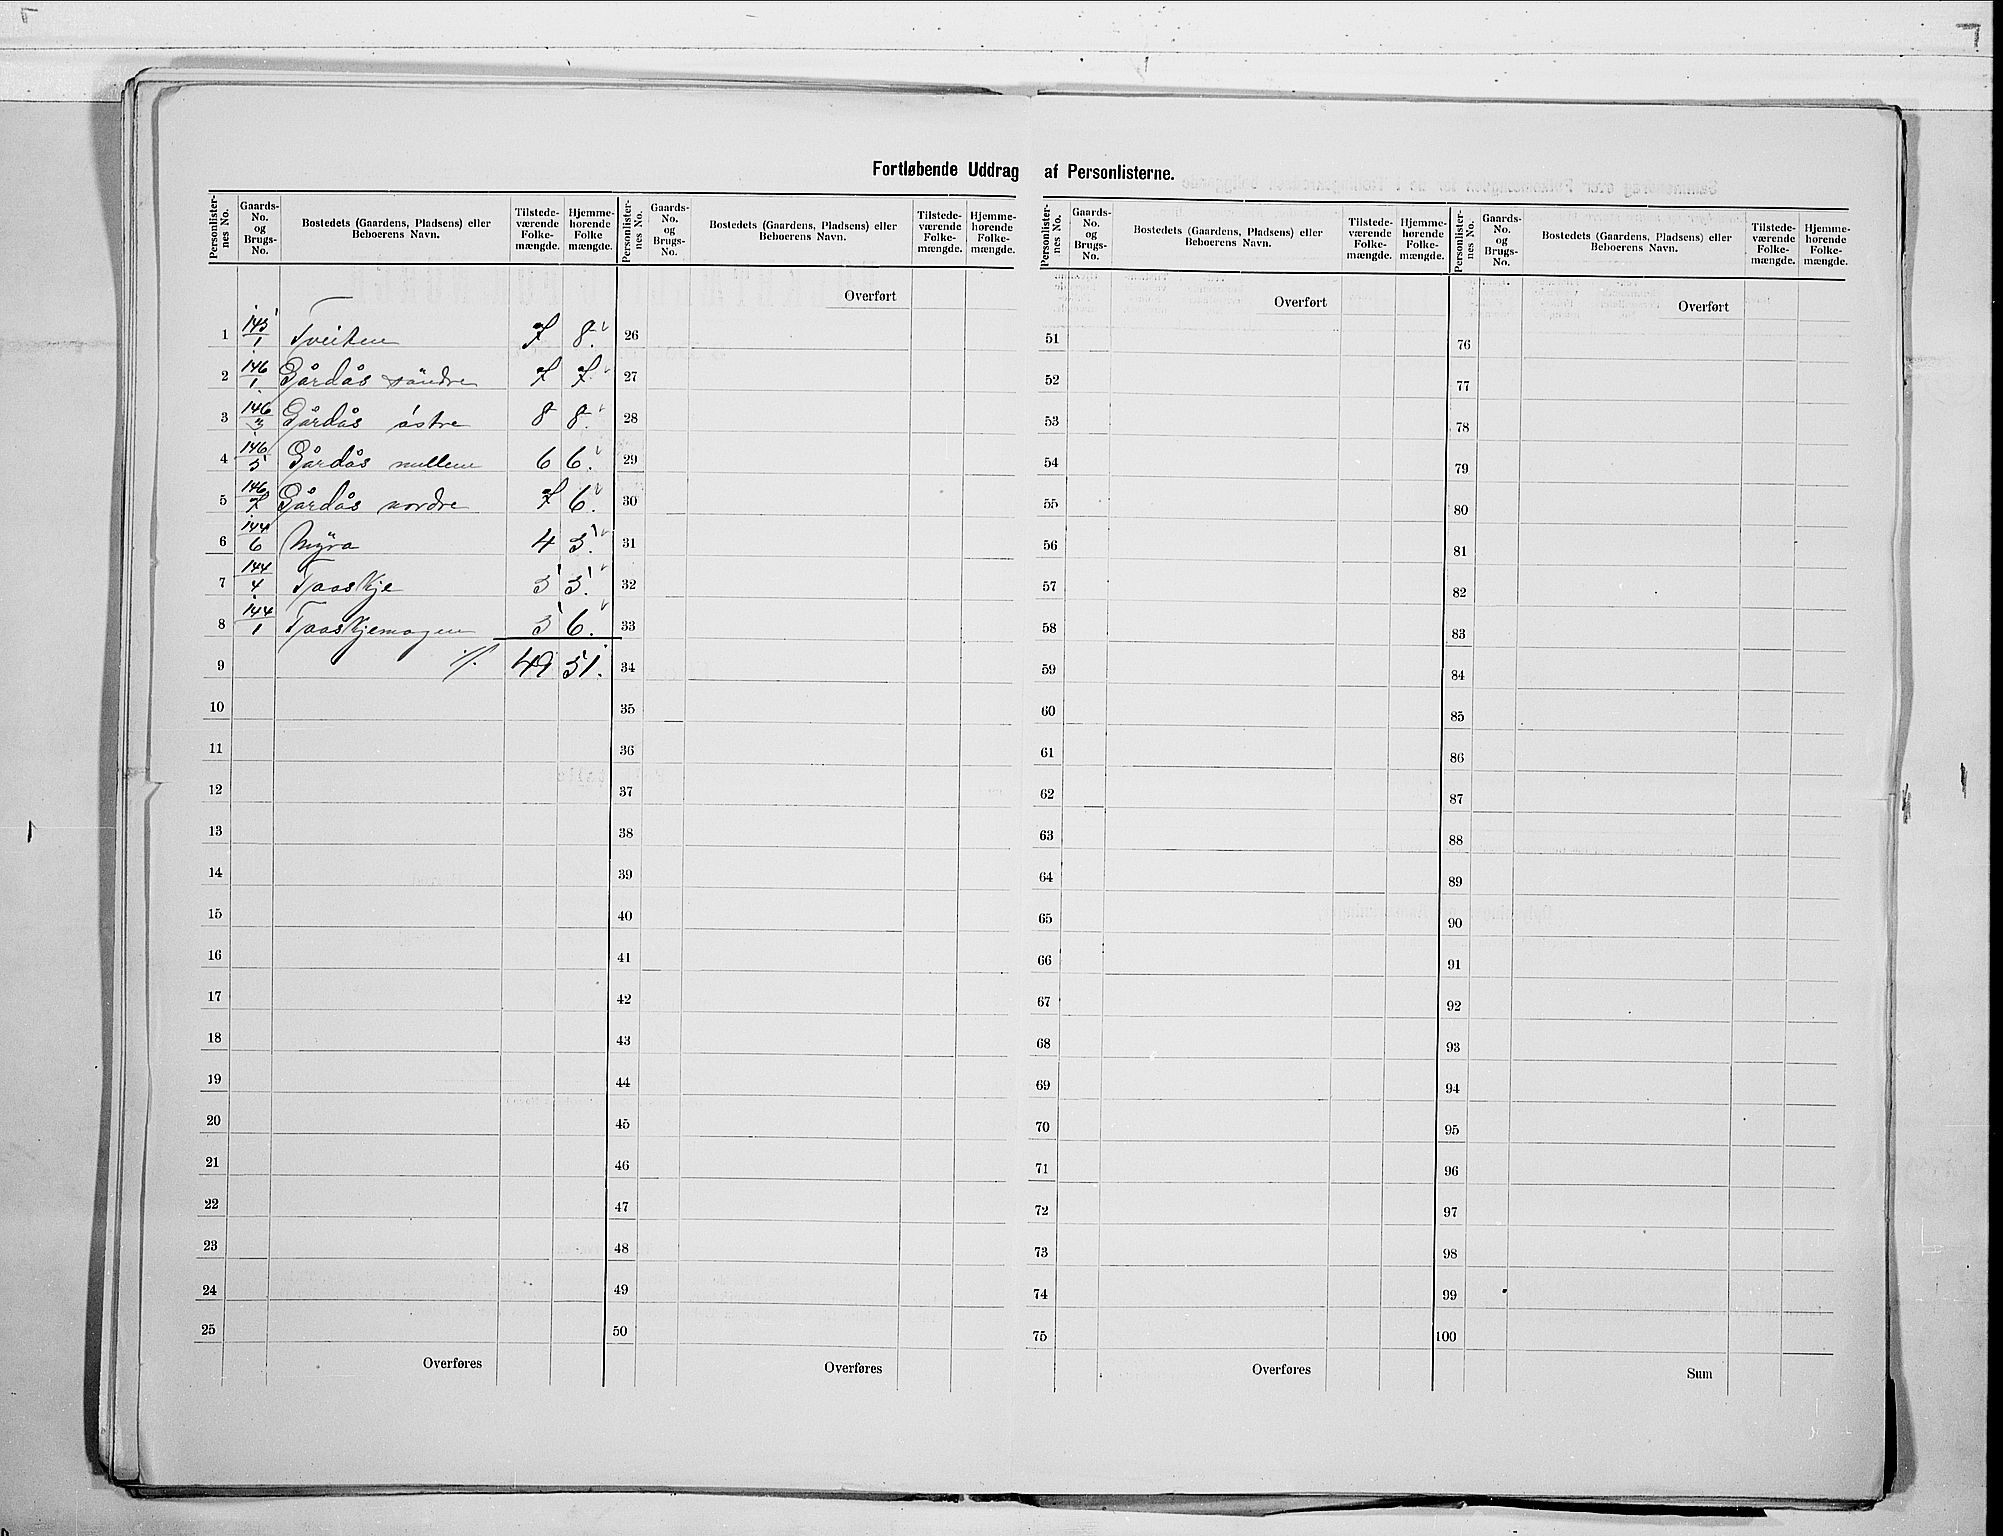 Fortløbende Uddrag af Personlisterne.
Personlister-nes No.
Gaards-No. og Brugs-No.
Bostedets (Gaardens, Pladsens) eller Beboerens Navn.
Tilstede-værende Folke-mængde.
Hjemme-hørende Folke mængde.
1 145/1 Tveiten 7 8.
2 146/1 Gårdås söndre 7 7.
3 146/3 Gårdås östre 8 8.
4 146/5 Gårdås mellem 6 6.
5 146/7 Gårdås nordre 7 6.
6 144/6 Myra 4 5.
7 144/4 5 5.
8 144/1 5 6.
9 ./. 49 51.
10
11
12
13
14
15
16
17
18
19
20
21
22
23
24
25
Overføres
Personlister-nes No.
Gaards-No. og Brugs-No.
Bostedets (Gaardens, Pladsens) eller Beboerens Navn.
Tilstede-værende Folke-mængde.
Hjemme-hørende Folke-mængde.
Overført
26
27
28
29
30
31
32
33
34
35
36
37
38
39
40
41
42
43
44
45
46
47
48
49
50
Overføres
Personlister-nes No.
Gaards-No. og Brugs-No.
Bostedets (Gaardens, Pladsens) eller Beboerens Navn.
Tilstede-værende Folke-mængde.
Hjemme-hørende Folke-mængde.
Overført
51
52
53
54
55
56
57
58
59
60
61
62
63
64
65
66
67
68
69
70
71
72
73
74
75
Overføres
Personlister-nes No.
Gaards-No. og Brugs-No.
Bostedets (Gaardens, Pladsens) eller Beboerens Navn.
Tilstede-værende Folke-mængde.
Hjemme-hørende Folke-mængde.
Overført
76
77
78
79
80
81
82
83
84
85
86
87
88
89
90
91
92
93
94
95
96
97
98
99
100
Sum